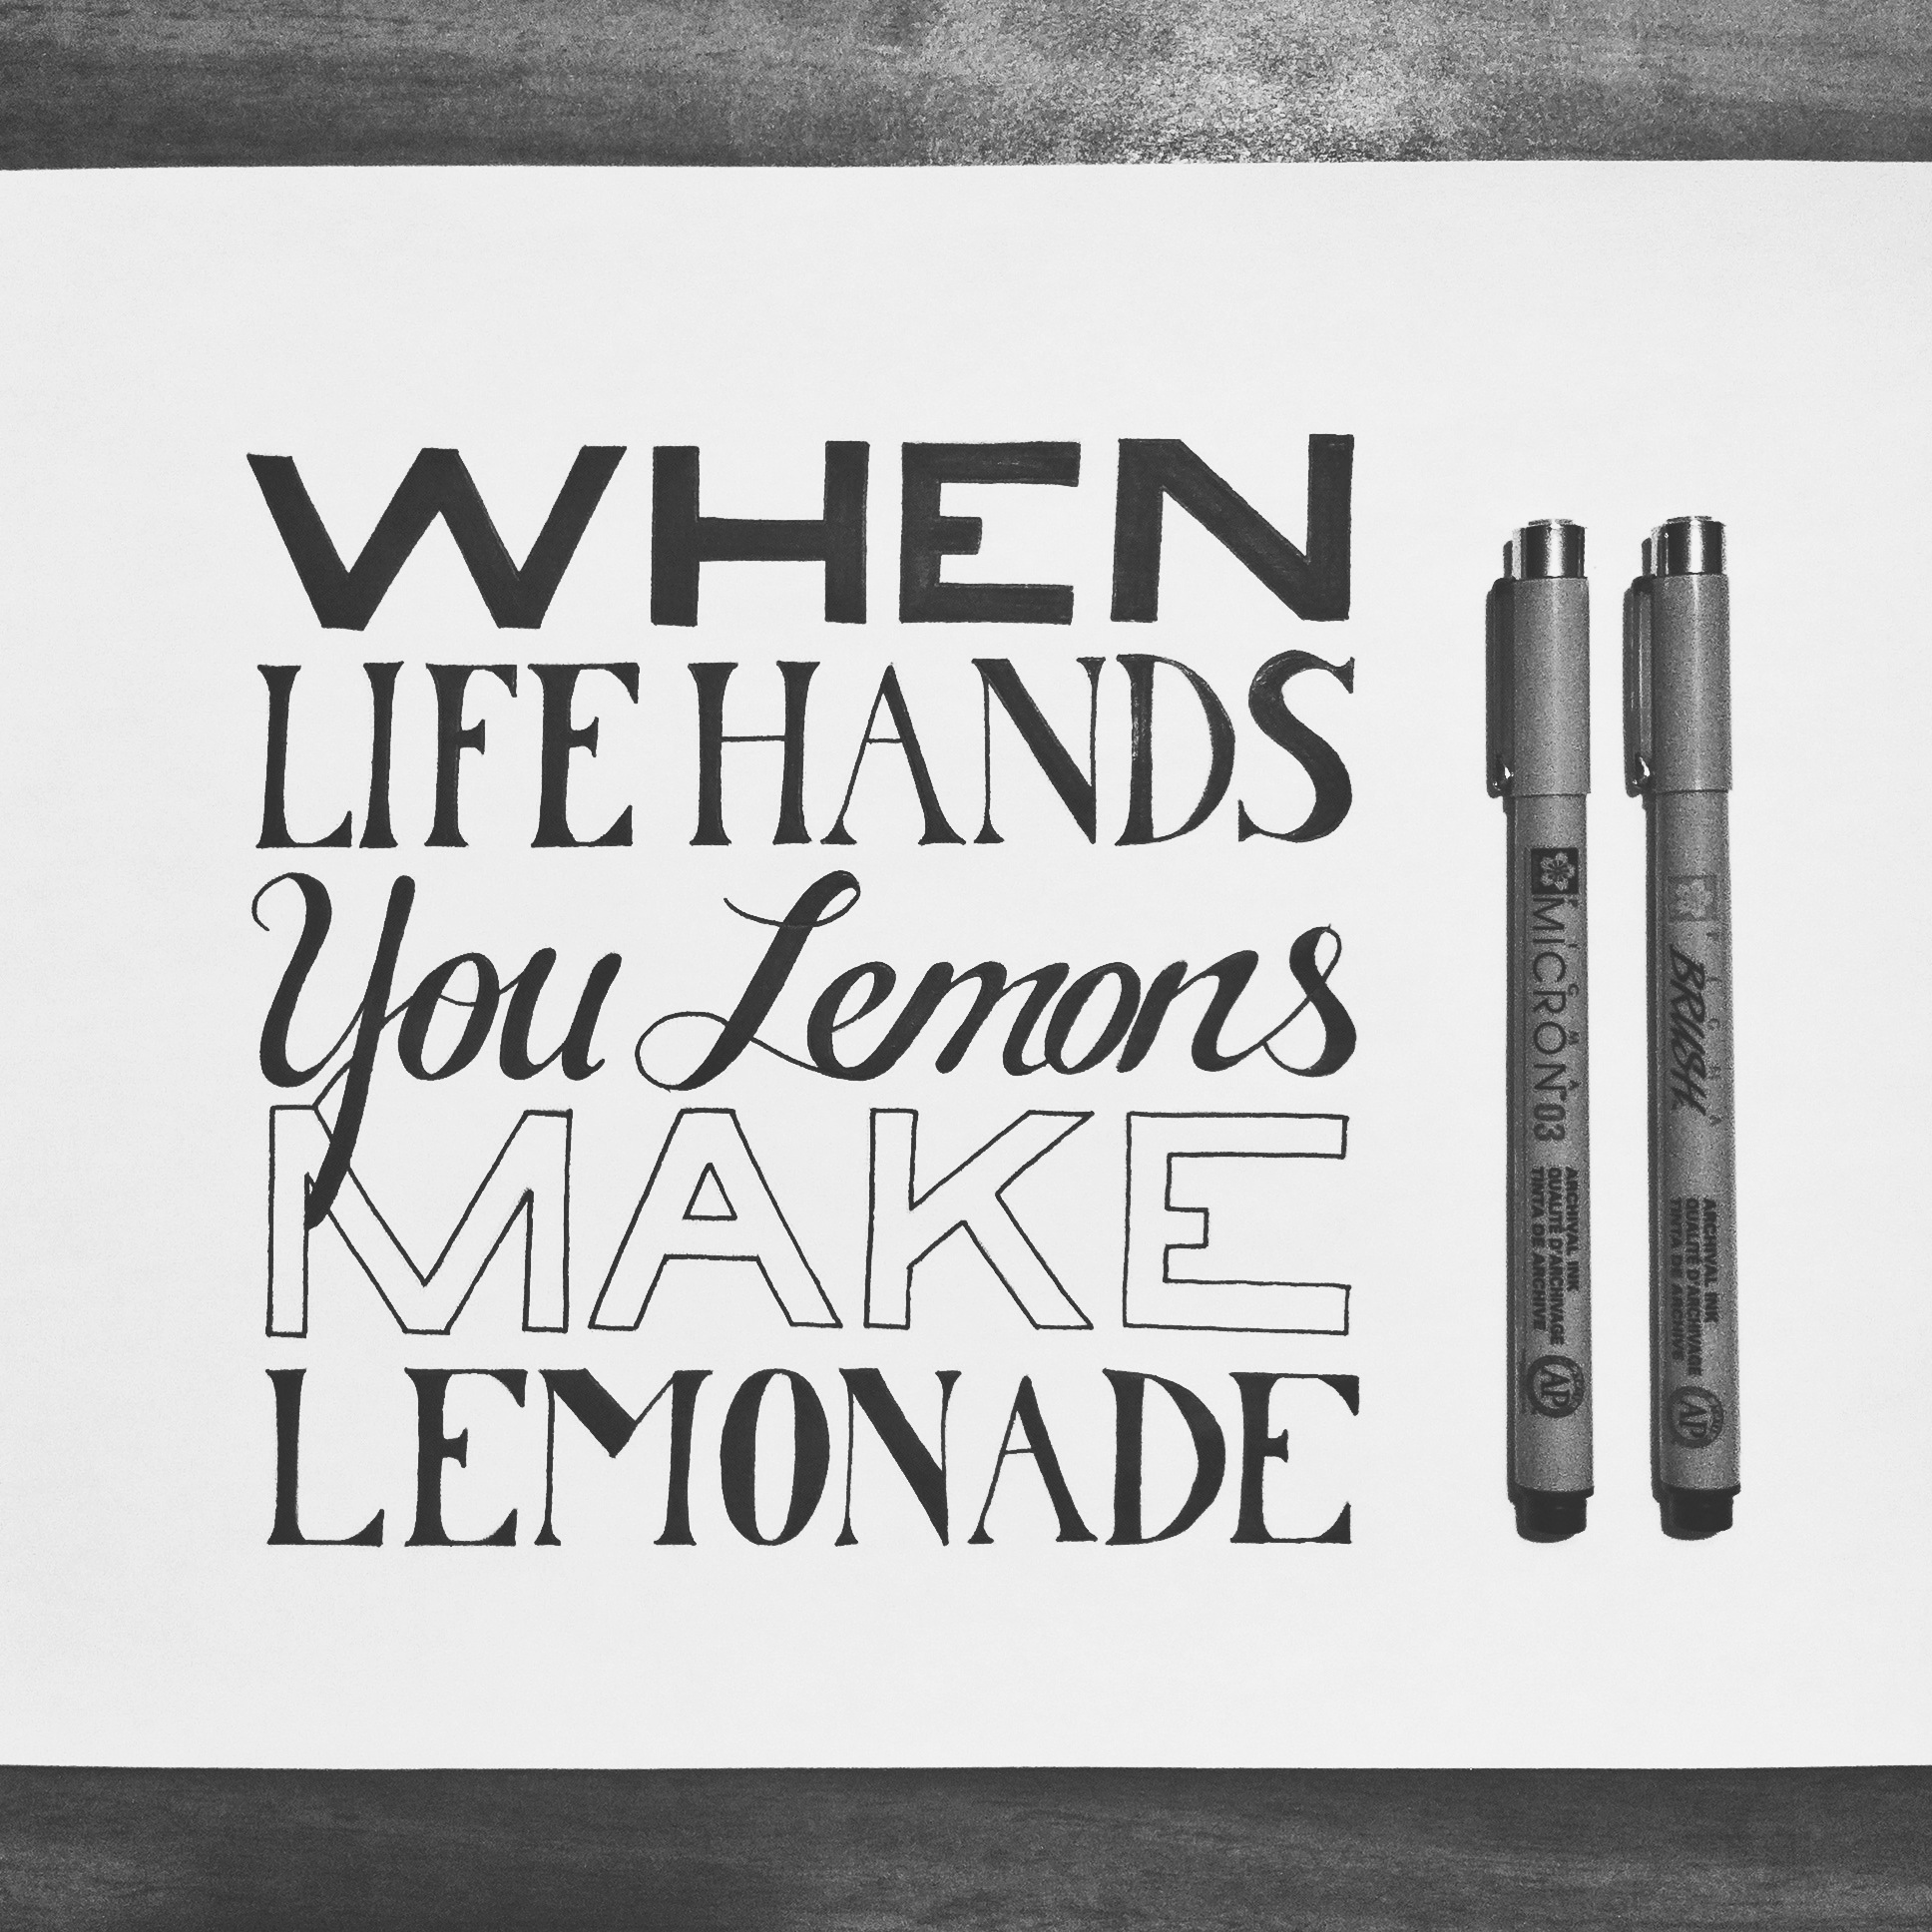 WHEN
LIFE HANDS
You Lemons
MAKE
LEMONADE
MICRON 03
PIGMA
ARCHIVAL INK
QUALITÉ D'ARCHIVAGE
TINTA DE ARCHIVE
AP
BRUSH
PIGMA
ARCHIVAL INK
QUALITÉ D'ARCHIVAGE
TINTA DE ARCHIVE
AP